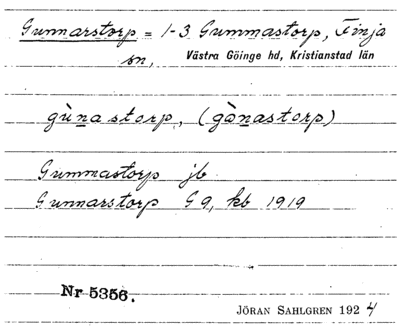 Gunnarstorp = 1-3 Gummastorp, Finja
sn, Västra Göinge hd, Kristianstad län
gùnastorp, (gònastorp)
Gummastorp jb
Gunnarstorp G9, kb 1919
Nr 5356.
JÖRAN SAHLGREN 1924